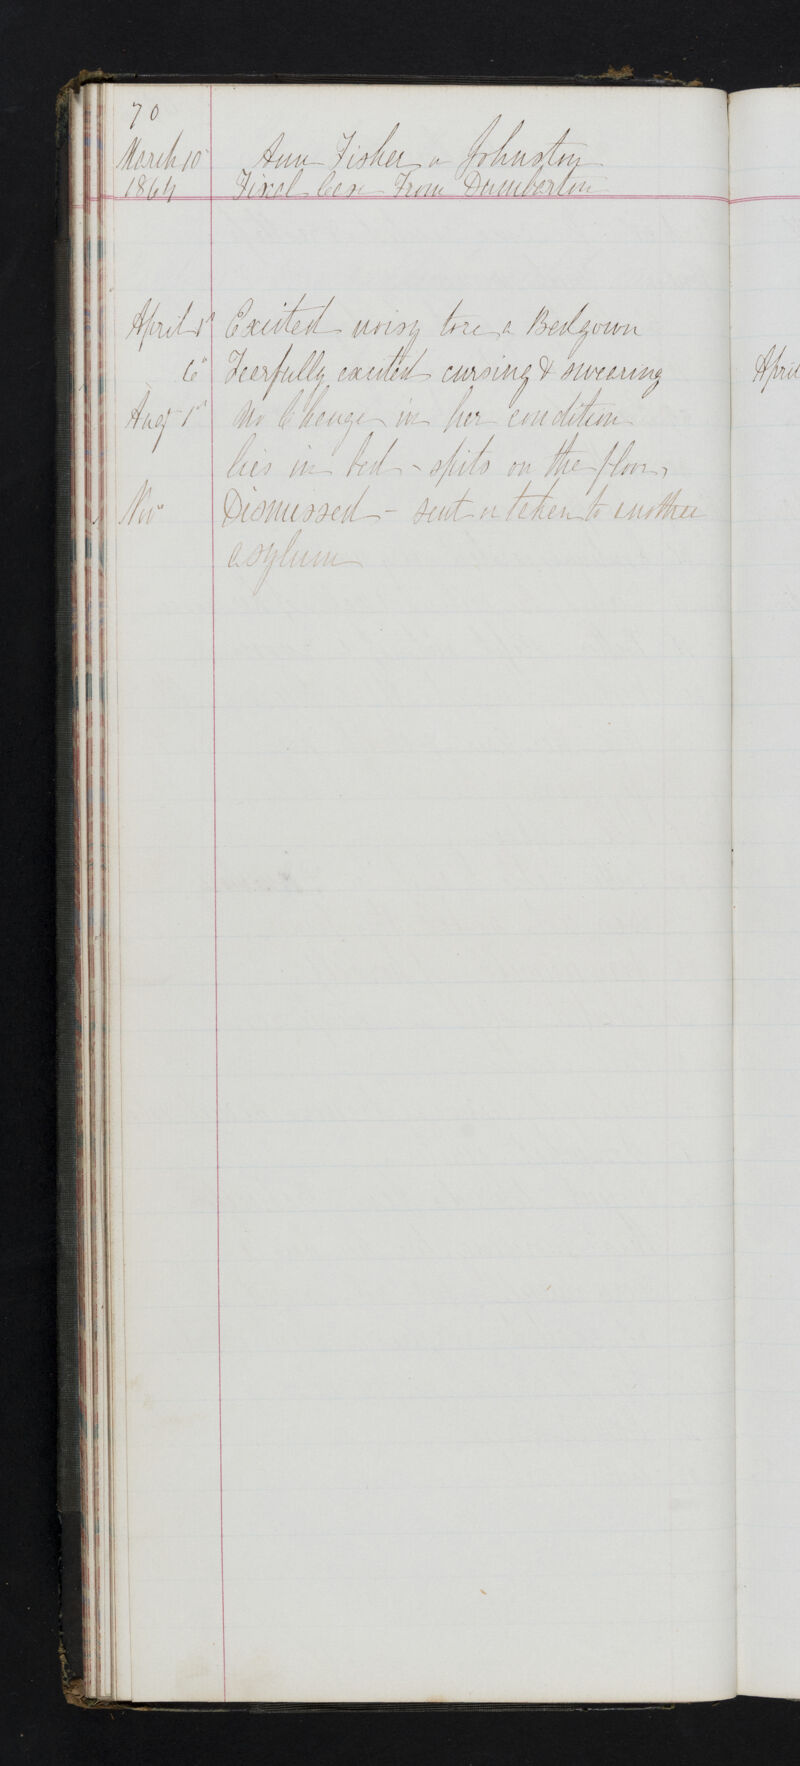 70
March 10 Ann Fisher or Johnston
1864 Fixed Case From Dumbarton
April 1st Excited noisy tore a Bedgown
6" Feerfully excited cursing & swearing
Augt 1st No Change in her condition
lies in bed - spits on the floor,
Nov Dismissed - sent or taken to another
asylum
April